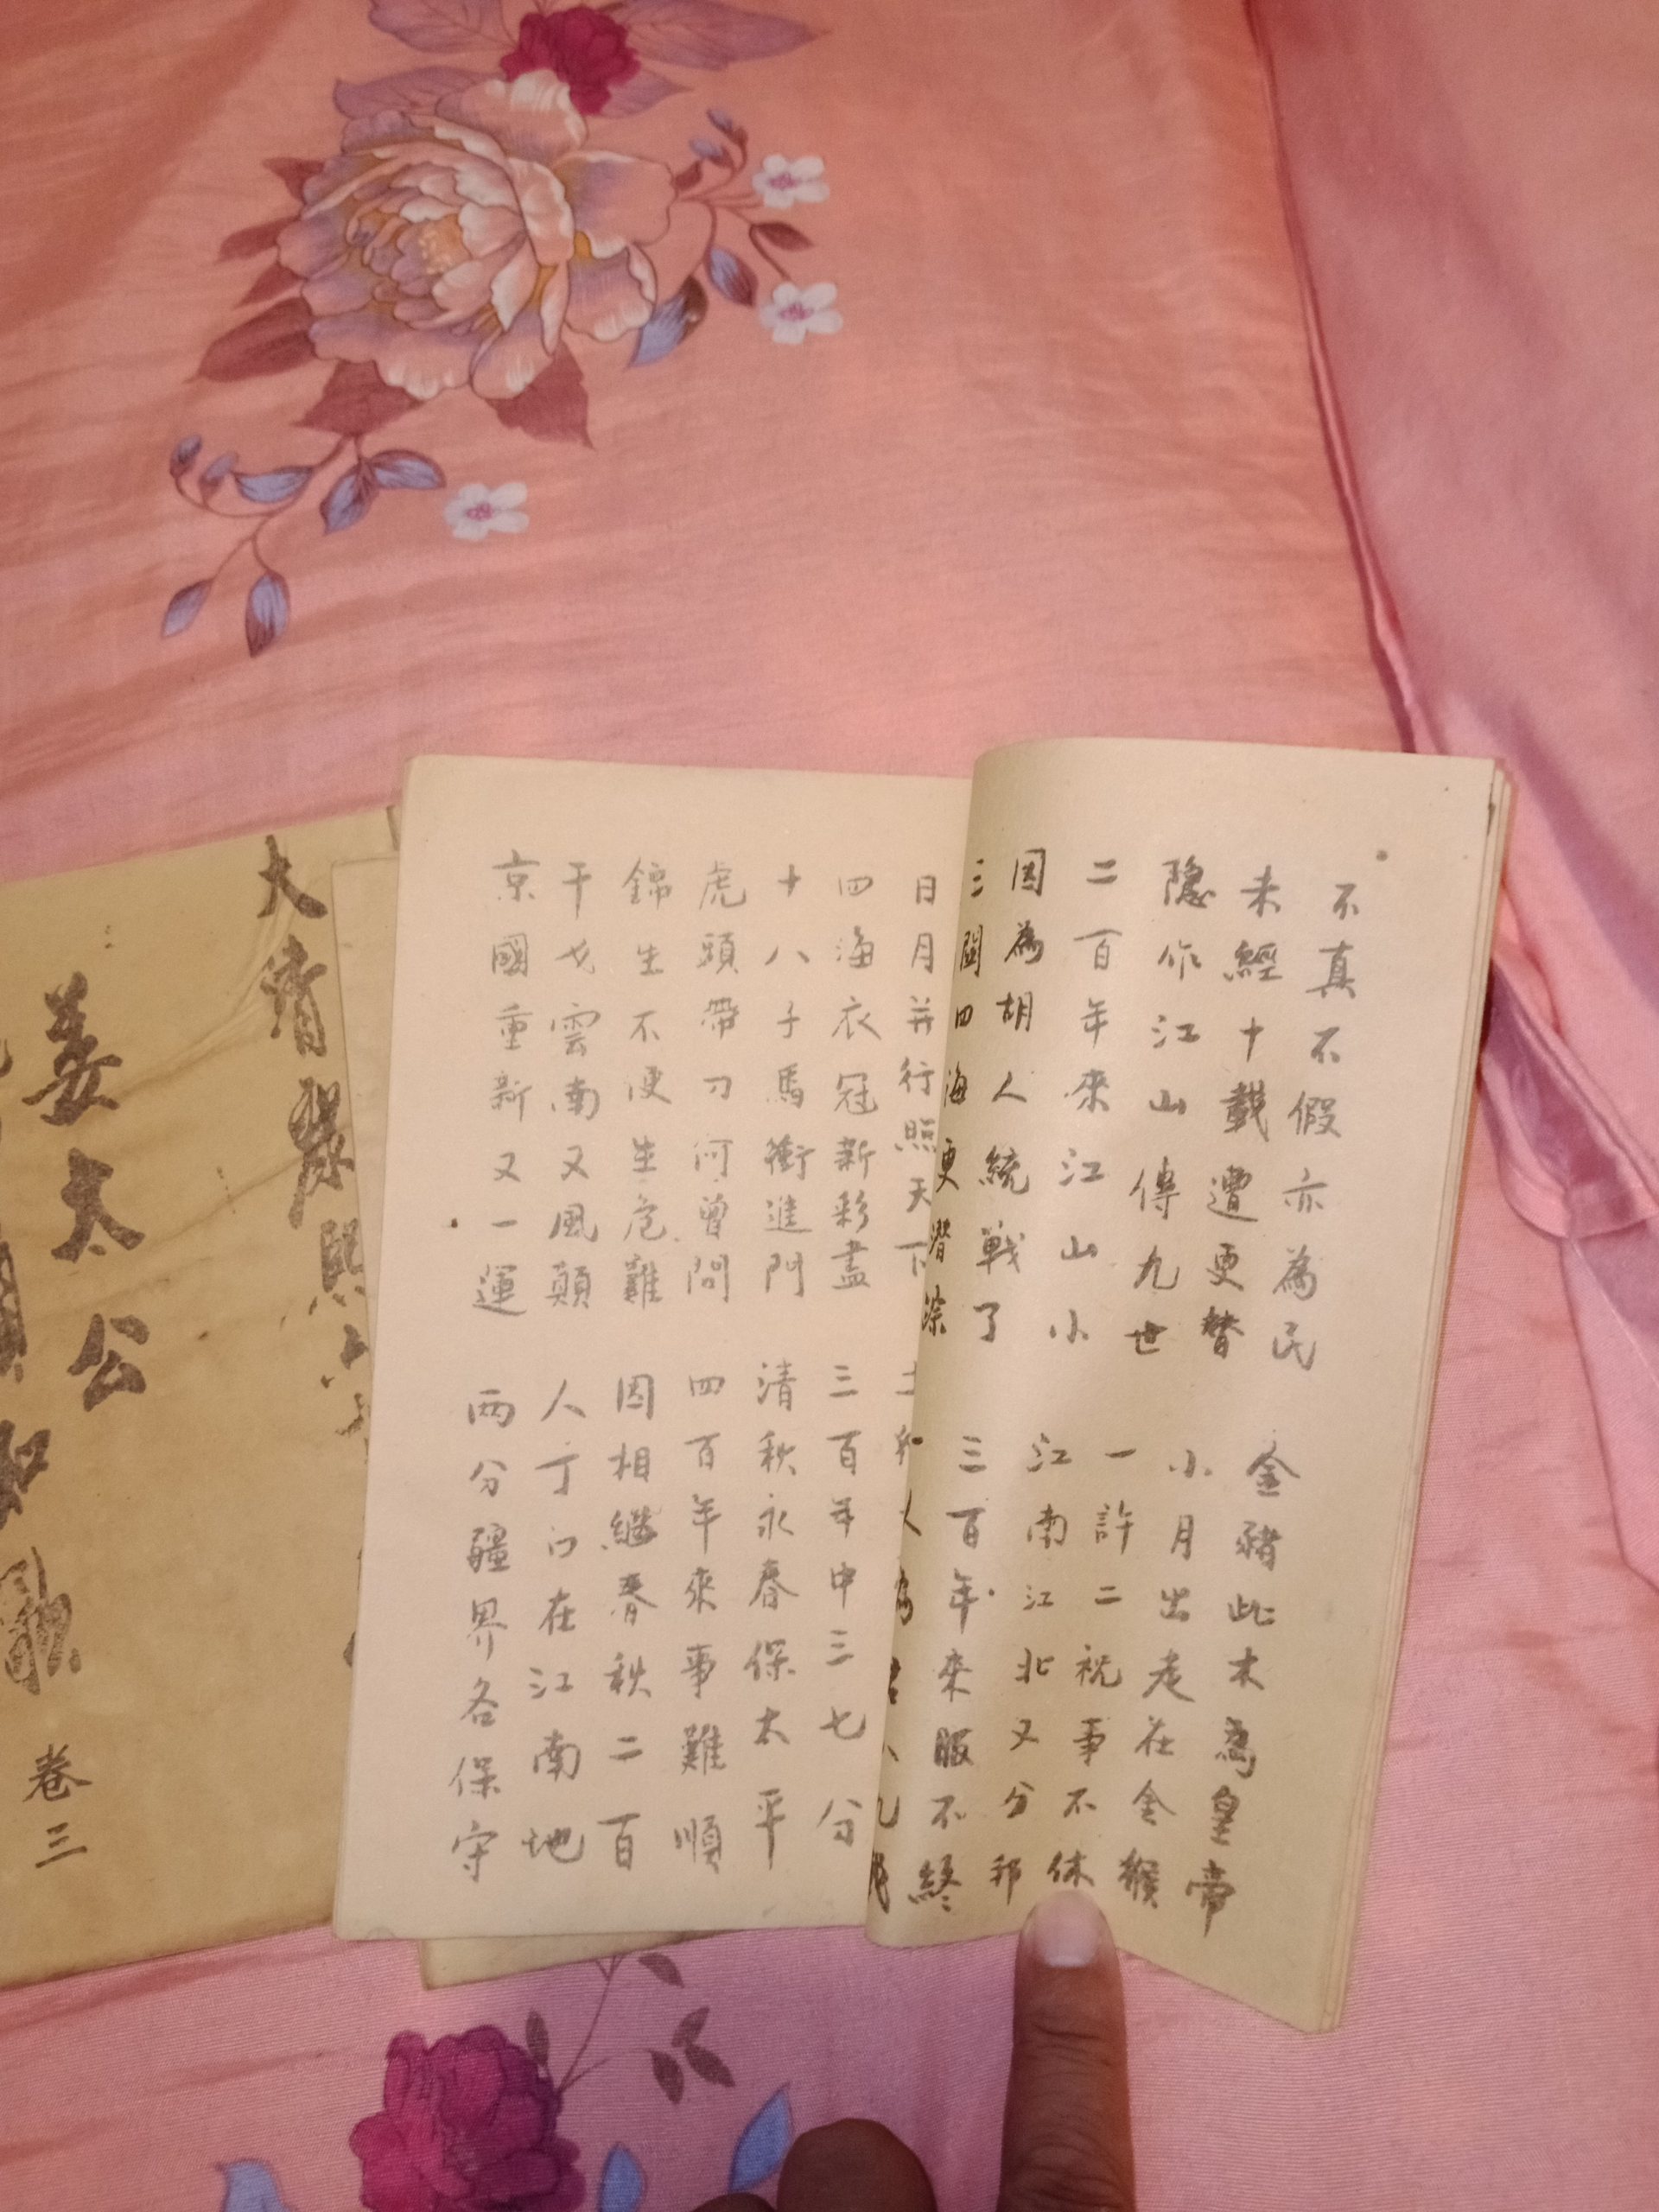 不真不假亦為民 金豬此木為皇帝
未經十載遭更替 小月出老在金猴
隐作江山傳九世 一許二祝事不休
二百年來江山小 江南江北又分邦
因為胡人統戰了 三百年來服不終
三關四海更潜淙
日月并行照天下
四海衣冠新彩盡 三百年中三七分
十八子馬衝進門 清秋永春保太平
虎頭帶刀何曾問 四百年來事難順
錦生不便生危難 因相繼春秋二百
干戈雲南又風顛 人丁口在江南地
京國重新又一運 兩分疆界各保守
大清
姜太公
歌 卷三